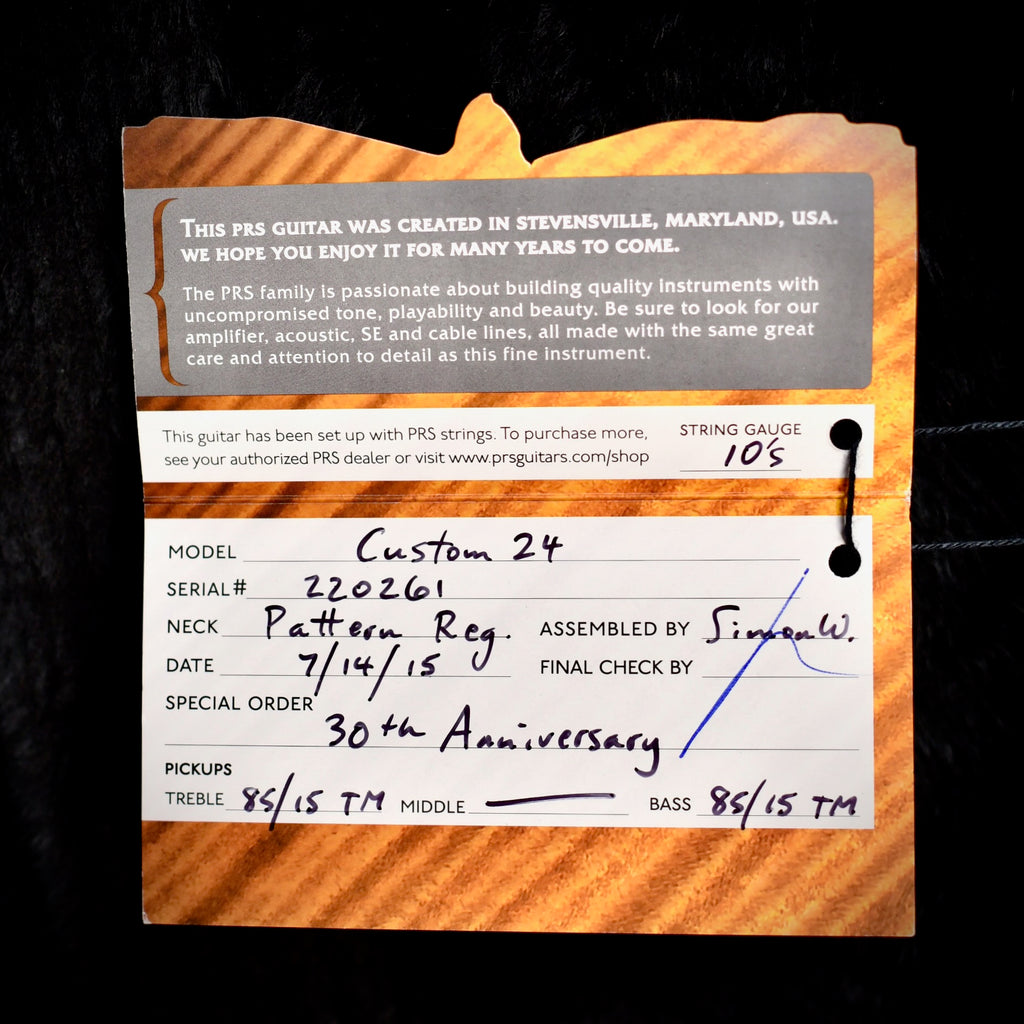 THIS PRS GUITAR WAS CREATED IN STEVENSVILLE, MARYLAND, USA.
WE HOPE YOU ENJOY IT FOR MANY YEARS TO COME.
The PRS family is passionate about building quality instruments with
uncompromised tone, playability and beauty. Be sure to look for our
amplifier, acoustic, SE and cable lines, all made with the same great
care and attention to detail as this fine instrument.
This guitar has been set up with PRS strings. To purchase more,
see your authorized PRS dealer or visit www.prsguitars.com/shop
STRING GAUGE
10's
MODEL Custom 24
SERIAL# 220261
NECK Pattern Reg. ASSEMBLED BY Simon W.
DATE 7/14/15 FINAL CHECK BY
SPECIAL ORDER
30th Anniversary
PICKUPS
TREBLE 85/15 TM MIDDLE BASS 85/15 TM